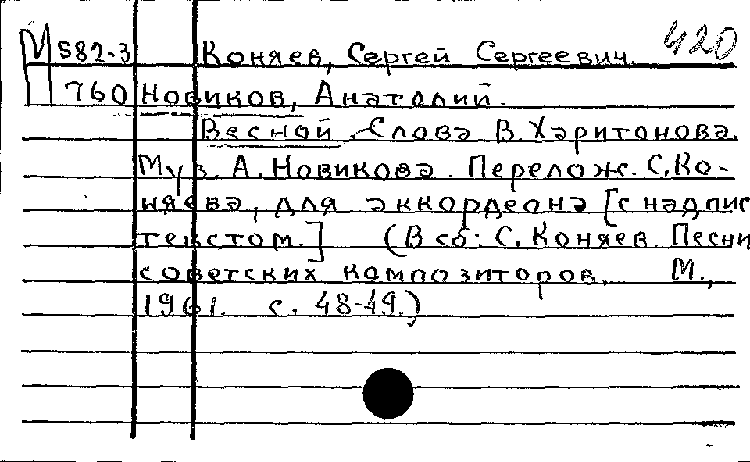 М 582-3 Коняев, Сергей Сергеевич. 420
П 760 Новиков, Анатолий.
Весной. Слова В. Харитонова.
Муз. А. Новикова. Перелож. С. Ко-
няева, для аккордеона [с надпис
текстом.] (В сб: С. Коняев. Песни
советских композиторов. М.,
1961. с. 48-49.)